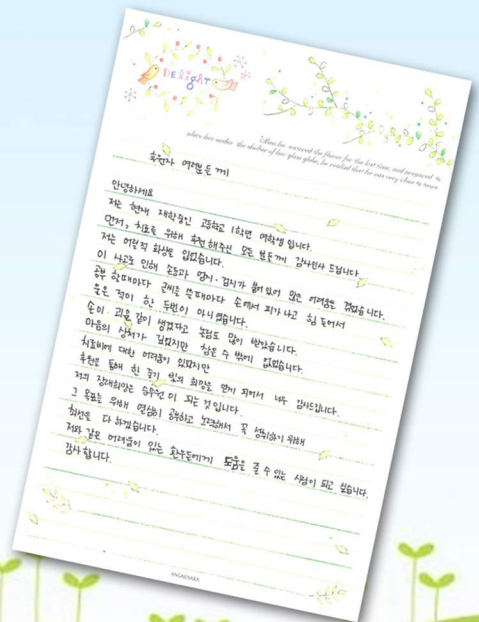 DELIGHT
When he watered the flower for the last time, and prepared to
place her under the shelter of her glass globe, he realised that he was very close to tears
후원자 여러분들께
안녕하세요
저는 현재 재학중인 고등학교 1학년 여학생입니다.
먼저, 치료를 위해 후원해주신 모든 분들께 감사인사 드립니다.
저는 어릴적 화상을 입었습니다.
이 사고로 인해 손등과 엄지·검지가 붙어있어 많은 어려움을 겪었습니다.
공부 할때마다 글씨를 쓸때마다 손에서 피가나고 힘들어서
울은 적이 한 두번이 아니였습니다.
손이 괴물같이 생겼다고 놀림도 많이 받았습니다.
마음의 상처가 깊었지만 참을 수 밖에 없었습니다.
치료비에 대한 어려움이 있었지만
후원을 통해 한 줄기 빛의 희망을 얻게 되어서 너무 감사드립니다.
저의 장래희망은 승무원이 되는 것입니다.
그 목표를 위해 열심히 공부하고 노력해서 꼭 성취하기 위해
최선을 다하겠습니다.
저와 같은 어려움이 있는 환우들에게 도움을 줄 수 있는 사람이 되고 싶습니다.
감사합니다.